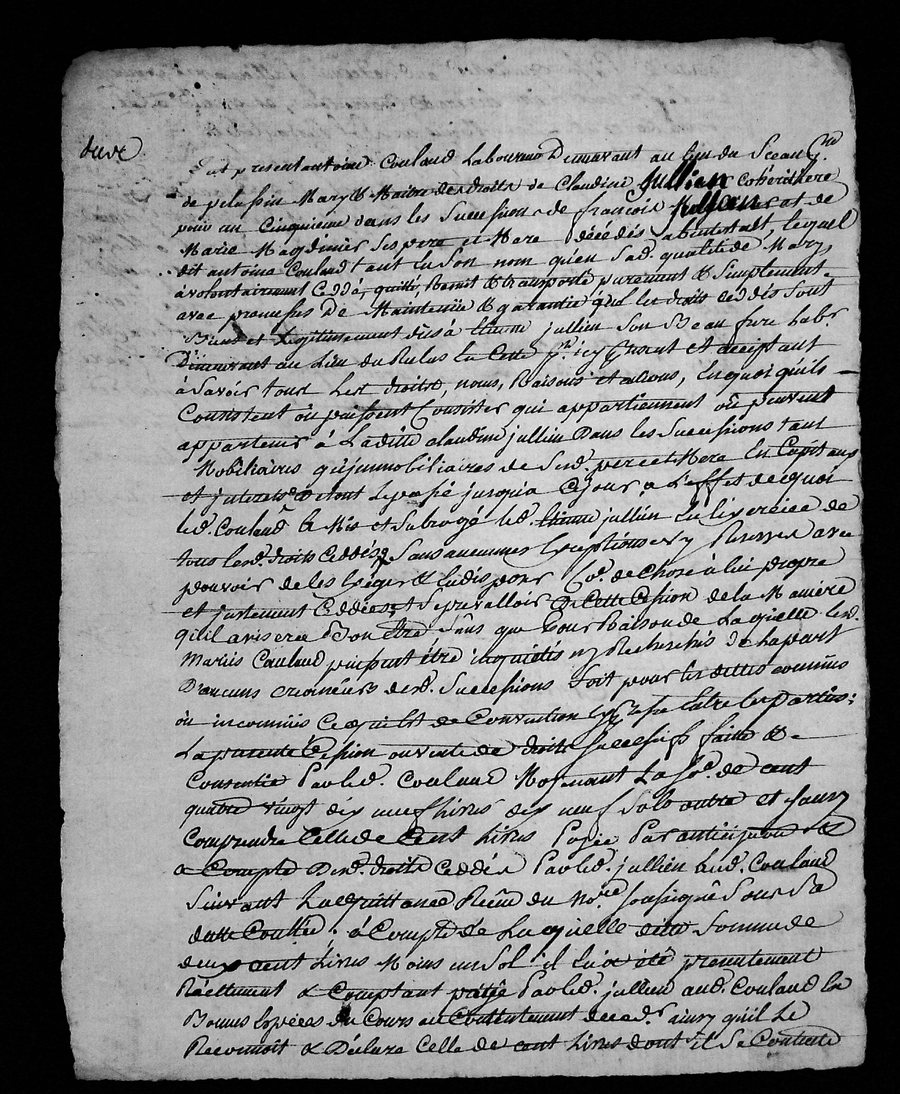 fut present antoine Couland Laboureur Demeurant au lieu du Sceau p.sse
de pelussin Mary & Maitre des droits de Claudine jullien coheritiere
pour un Cinquieme dans les Successions de francois jullien et de
Marie Magdinier Ses pere et Mere décédés abintestat, lequel
dit antoine Couland tant en Son nom qu'en sad. qualité de Mary,
à volontairement Ceddé, quitté, Remit & transporté purement & Simplement
avec promesses De Maintenüe & garantie que les droits ceddés Sont
Biens et Legitimement dûs à jullien Son Beau frere Lab.r
Demeurant au Lieu du en Cette p.sse icy present et acceptant
à Savoir tous Les droits, noms, Raisons et actions, En quoi qu'ils
Consistent ou puissent Consister qui appartiennent où peuvent
appartenir à Laditte claudine jullien Dans les Successions tant
Mobiliaires qu'immobiliaires de Sesd. pere et Mere En Capitaux
et interets Detout Le passé jusqu'a Cejour, a L'effet dequoi
led. Couland à Mis et Subrogé led. jullien En L'exercice de
tous lesd. droits Ceddés Sans aucunnes Exceptions ny Reserves avec
pouvoir de les Exiger & En disposer Co.e de Chose à lui propre
et justement Ceddées, et Se prevalloir De Cette Cession de la Maniere
qu'il avisera Bon être Sans que pour Raison de Laquelle lesd.
Mariés Couland puissent être inquietés ny Recherchés De la part
D'aucuns creanciers desd. Successions Soit pour les dettes connües
ou inconnües Ce qui Est de Convention Expresse Entre les parties:
La presente Cession ou vente de droits Successifs faitte &
Consentie Par led. Couland Moyenant La So.e de Cent
quatre vingt dix neuf Livres dix neuf Sols outre et Sans y
Comprendre Celle de Cent Livres Payée Par anticipation &
a Compte Desd. droits Ceddés Par led. jullien aud. Couland
Suivant La quittance Reçüe du No.re Soussigné Sous Sa
datte Conttée. à Compte de Laquelle ditte Somme de
deux cent Livres Moins un Sol il Lui a été presentement
Réellement & Comptant payé Par led. jullien aud. Couland En
Bonnes Espèces du Cours au Contentement de ced.r ainsy qu'il Le
Reconnoit & Déclare Celle de cent Livres dont il Se Contente